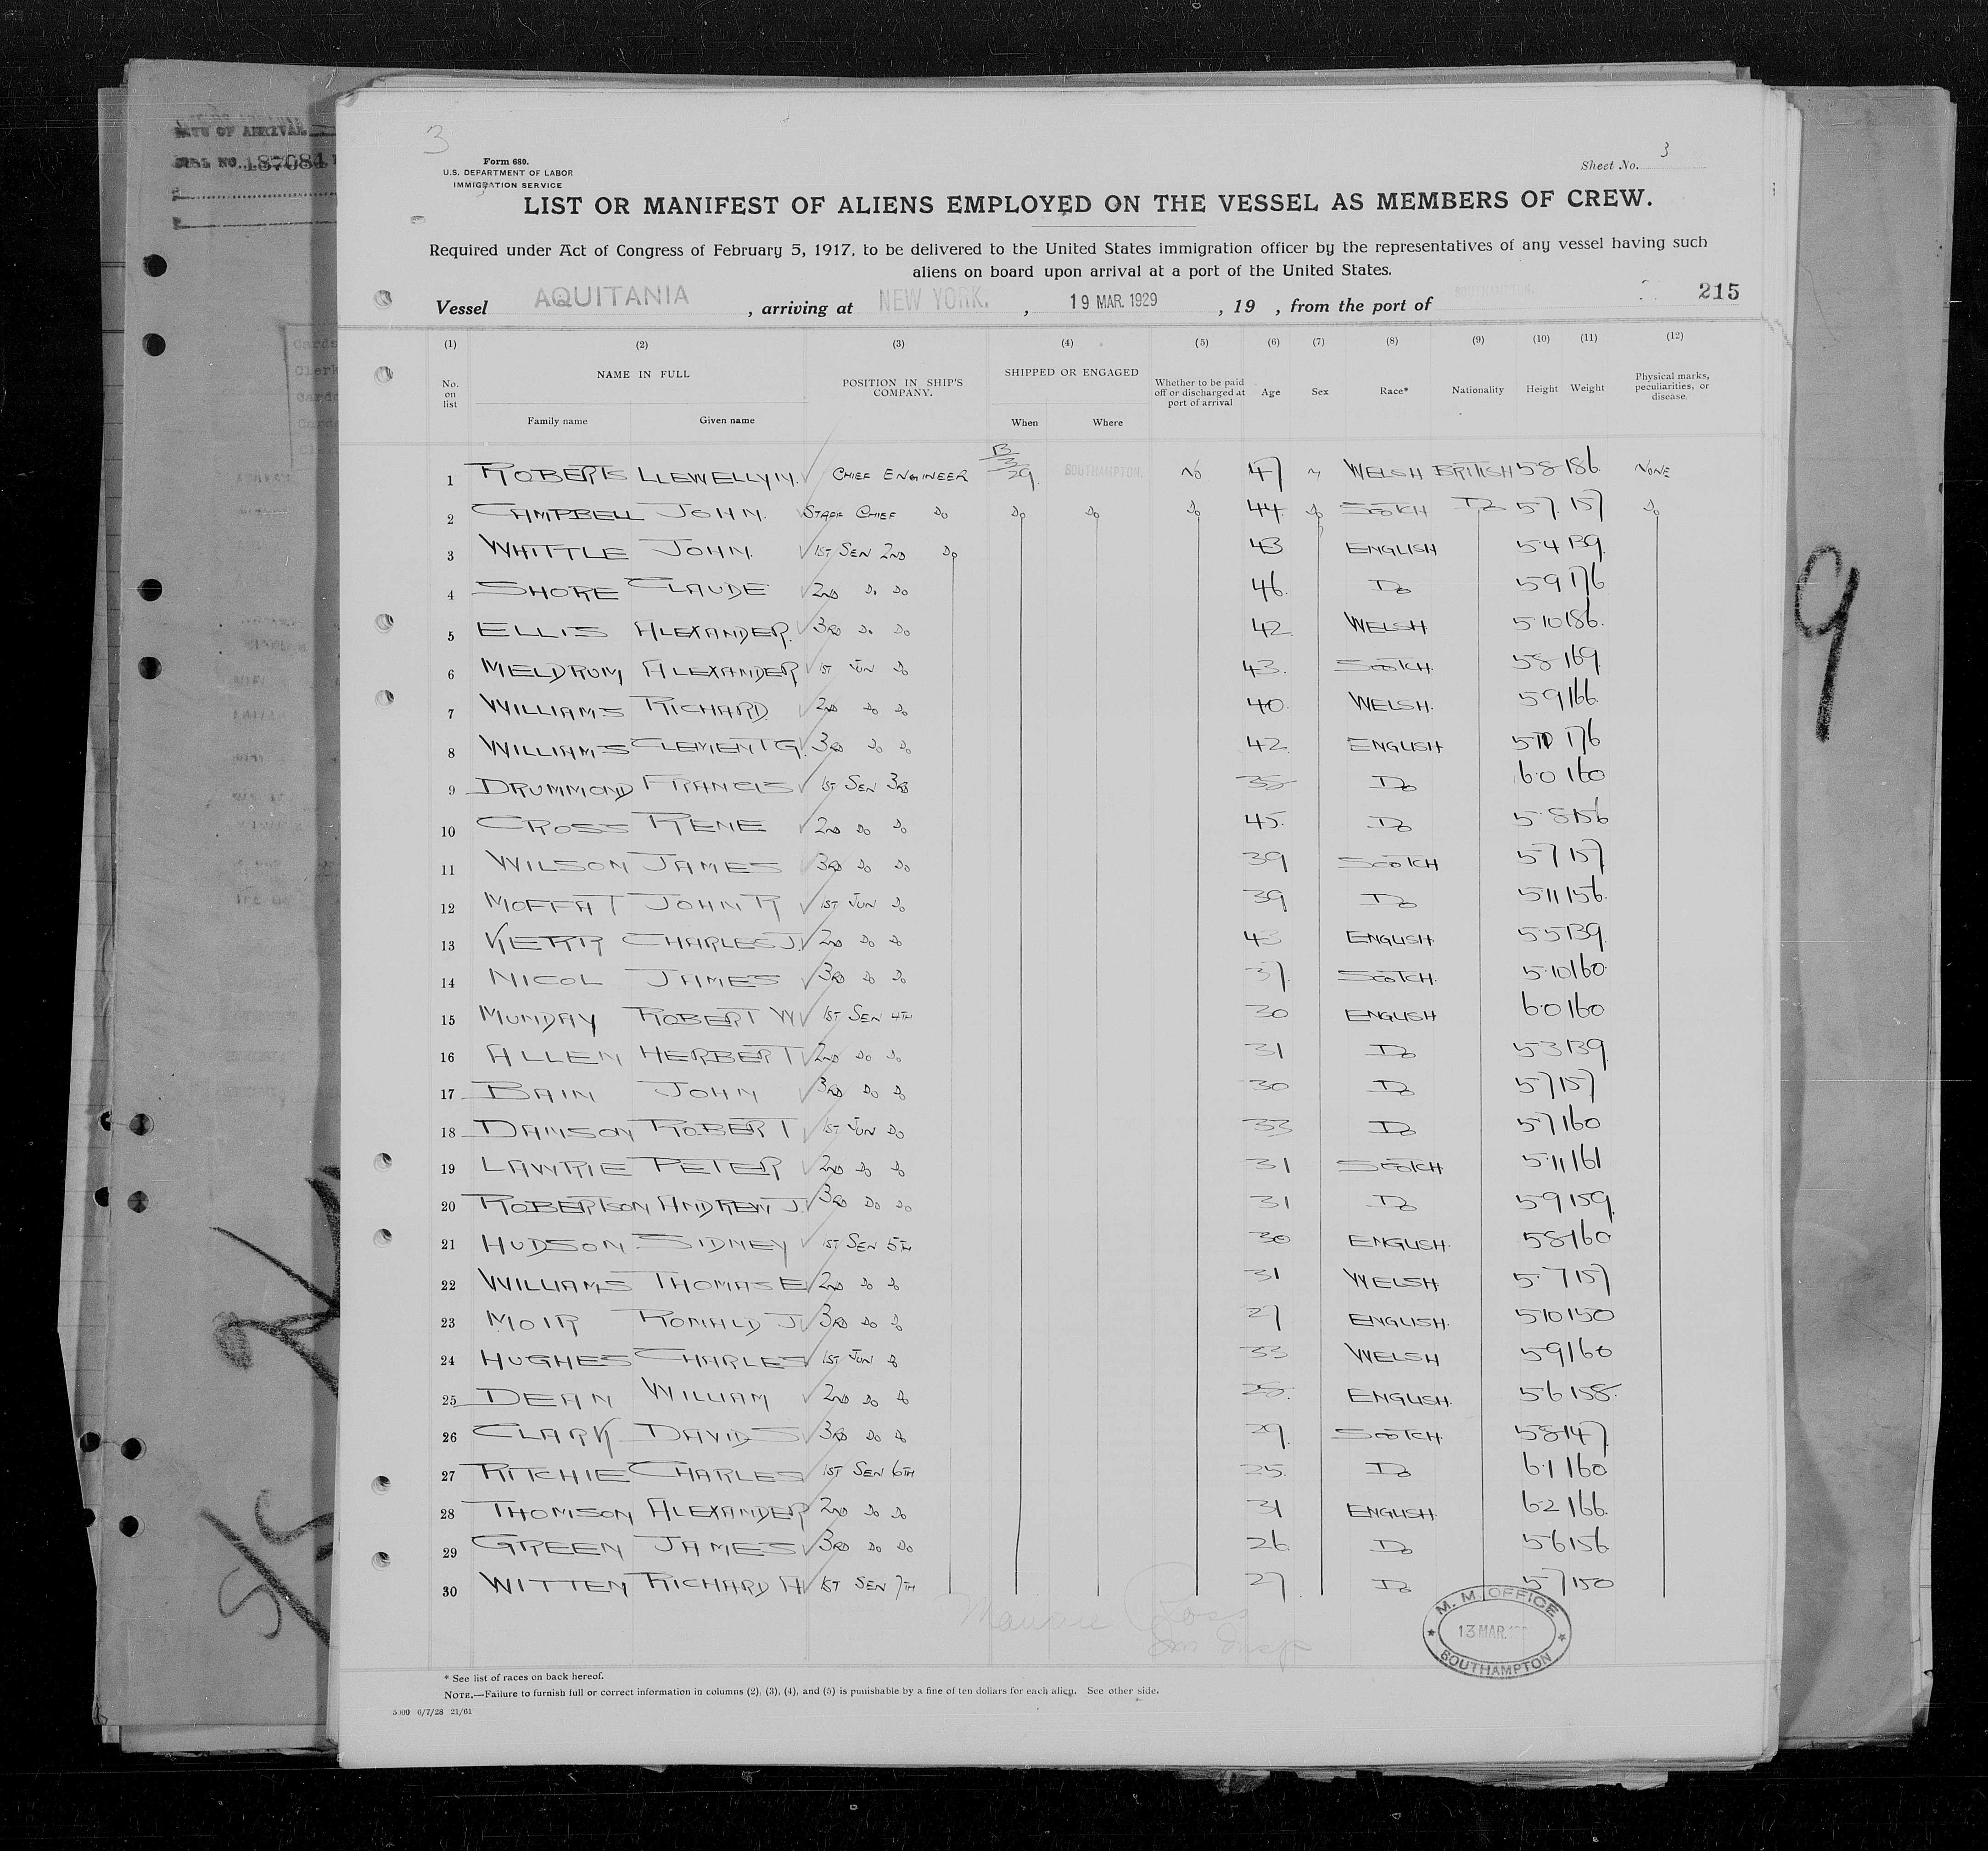 3
DATE OF ARRIVAL
187084
Form 680.
U.S. DEPARTMENT OF LABOR
IMMIGRATION SERVICE
Sheet No. 3
LIST OR MANIFEST OF ALIENS EMPLOYED ON THE VESSEL AS MEMBERS OF CREW.
Required under Act of Congress of February 5, 1917, to be delivered to the United States immigration officer by the representatives of any vessel having such
aliens on board upon arrival at a port of the United States.
Vessel AQUITANIA, arriving at NEW YORK., 19 MAR. 1929, 19 , from the port of SOUTHAMPTON. 215
(1) (2) (3) (4) (5) (6) (7) (8) (9) (10) (11) (12)
No. on list NAME IN FULL POSITION IN SHIP'S COMPANY. SHIPPED OR ENGAGED Whether to be paid off or discharged at port of arrival Age Sex Race* Nationality Height Weight Physical marks, peculiarities, or disease.
Family name Given name When Where
1 ROBERTS LLEWELLYN. CHIEF ENGINEER 13/3/29. SOUTHAMPTON. NO 47 M WELSH BRITISH 5 8 186 NONE
2 CAMPBELL JOHN. STAFF CHIEF DO DO DO DO 44. DO SCOTCH DO 5 7. 157 DO
3 WHITTLE JOHN. 1ST SEN 2ND DO 43 ENGLISH 5 4 139.
4 SHORE CLAUDE 2ND DO DO 46. DO 5 9 176
5 ELLIS ALEXANDER. 3RD DO DO 42 WELSH 5 10 186.
6 MELDRUM ALEXANDER 1ST JUN DO 43. SCOTCH. 5 8 169
7 WILLIAMS RICHARD 2ND DO DO 40. WELSH. 5 9 166.
8 WILLIAMS CLEMENT G. 3RD DO DO 42 ENGLISH 5 10 176
9 DRUMMOND FRANCIS 1ST SEN 3RD 38 DO 6.0 160
10 CROSS RENE 2ND DO DO 45. DO 5.8 156
11 WILSON JAMES 3RD DO DO 39 SCOTCH 5 7 157
12 MOFFAT JOHN R 1ST JUN DO 39 DO 5 11 156.
13 KERR CHARLES J. 2ND DO DO 43 ENGLISH. 5 5 139.
14 NICOL JAMES 3RD DO DO 37. SCOTCH. 5.10 160.
15 MUNDAY ROBERT W 1ST SEN 4TH 30 ENGLISH 6.0 160
16 ALLEN HERBERT 2ND DO DO 31 DO 5 3 139.
17 BAIN JOHN 3RD DO DO 30 DO 5 7 157
18 DAMSON ROBERT 1ST JUN DO 33 DO 5 7 160
19 LAWRIE PETER 2ND DO DO 31 SCOTCH. 5.11 161
20 ROBERTSON ANDREW J. 3RD DO DO 31 DO 5 9 159.
21 HUDSON SIDNEY 1ST SEN 5TH 30 ENGLISH. 5 8 160
22 WILLIAMS THOMAS E 2ND DO DO 31 WELSH 5.7 157
23 MOIR RONALD J 3RD DO DO 27 ENGLISH. 5 10 150
24 HUGHES CHARLES 1ST JUN DO 33 WELSH 5 9 160
25 DEAN WILLIAM 2ND DO DO 28. ENGLISH. 5 6 158.
26 CLARK DAVID S 3RD DO DO 29. SCOTCH. 5 8 147.
27 RITCHIE CHARLES 1ST SEN 6TH 25. DO 6.1 160
28 THOMSON ALEXANDER 2ND DO DO 31 ENGLISH. 6.2 166.
29 GREEN JAMES 3RD DO DO 26 DO 5 6 156
30 WITTEN RICHARD A 1ST SEN 7TH 27 DO 5 7 150
M. M. OFFICE
13 MAR.
SOUTHAMPTON
* See list of races on back hereof.
NOTE.—Failure to furnish full or correct information in columns (2), (3), (4), and (5) is punishable by a fine of ten dollars for each alien. See other side.
5000 6/7/28 21/61
9